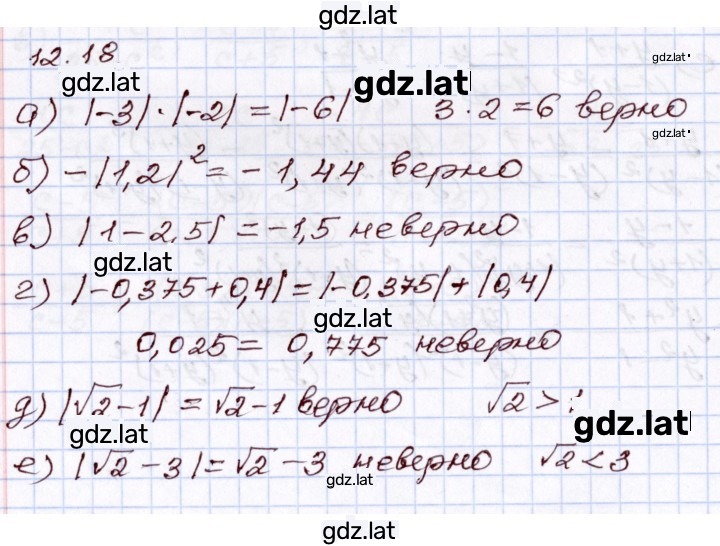 gdz.lat
12.18
gdz.lat
gdz.lat
gdz.lat
а) |-3| · |-2| = |-6| 3 · 2 = 6 верно
gdz.lat
б) -|1,2|² = -1,44 верно
в) |1-2,5| = -1,5 неверно
gdz.lat
г) |-0,375+0,4| = |-0,375| + |0,4|
gdz.lat
0,025 = 0,775 неверно
д) |√2-1| = √2-1 верно √2 >
gdz.lat
е) |√2-3| = √2-3 неверно √2 < 3
gdz.lat
gdz.lat